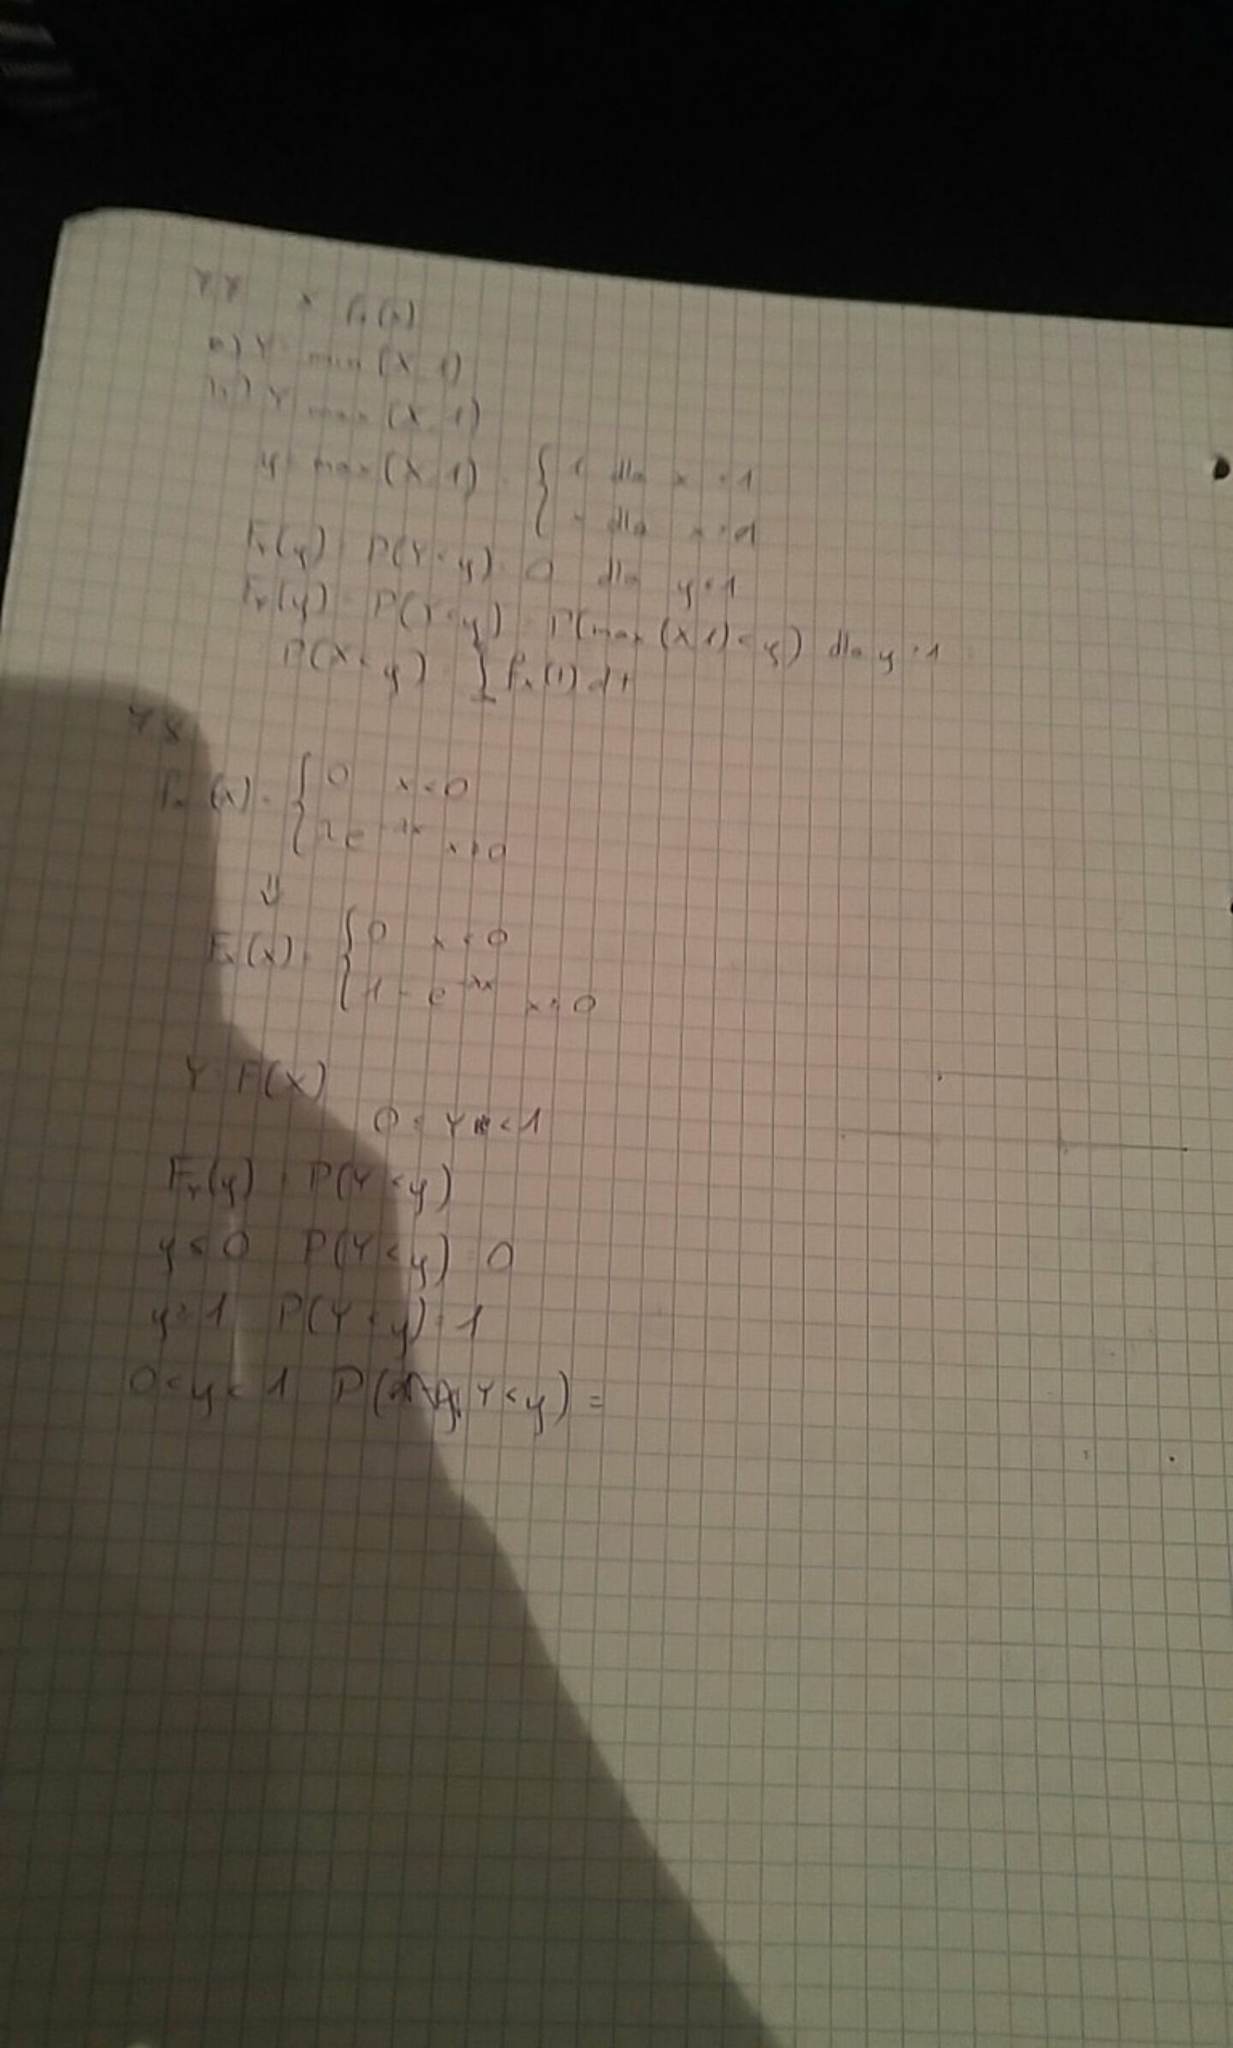 a) Y = min(X, 1)
b) Y = max(X, 1)
y = max(X, 1) = { 1 dla x < 1
x dla x > 1
F_Y(y) = P(Y < y) = 0 dla y < 1
F_Y(y) = P(Y < y) = P(max(X, 1) < y) dla y > 1
P(X < y) = ∫ f_x(t) dt
f_x(x) = { 0 x < 0
λe^{-λx} x > 0
⇓
F_x(x) = { 0 x < 0
1 - e^{-λx} x > 0
Y = F(X)
0 < Y < 1
F_Y(y) = P(Y < y)
y < 0 P(Y < y) = 0
y > 1 P(Y < y) = 1
0 < y < 1 P(Y < y) =